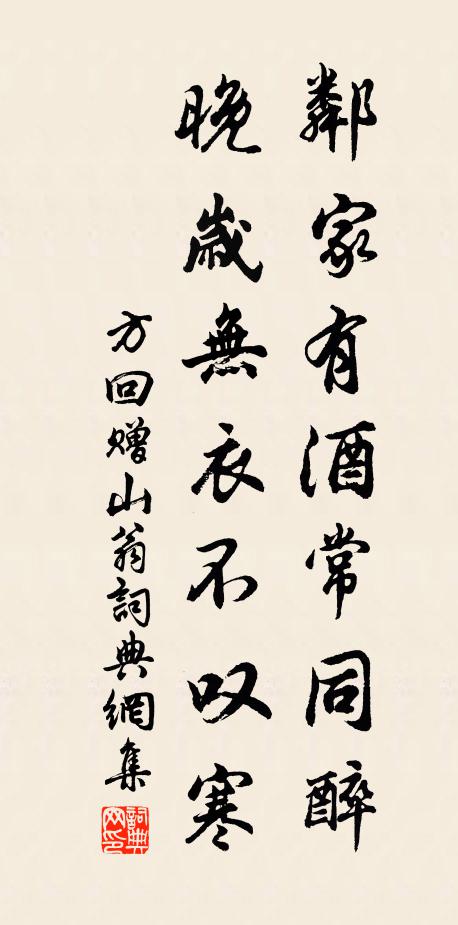 鄰家有酒常同醉
晚歲無衣不叹寒
方回赠山翁詞典網集
詞典網印